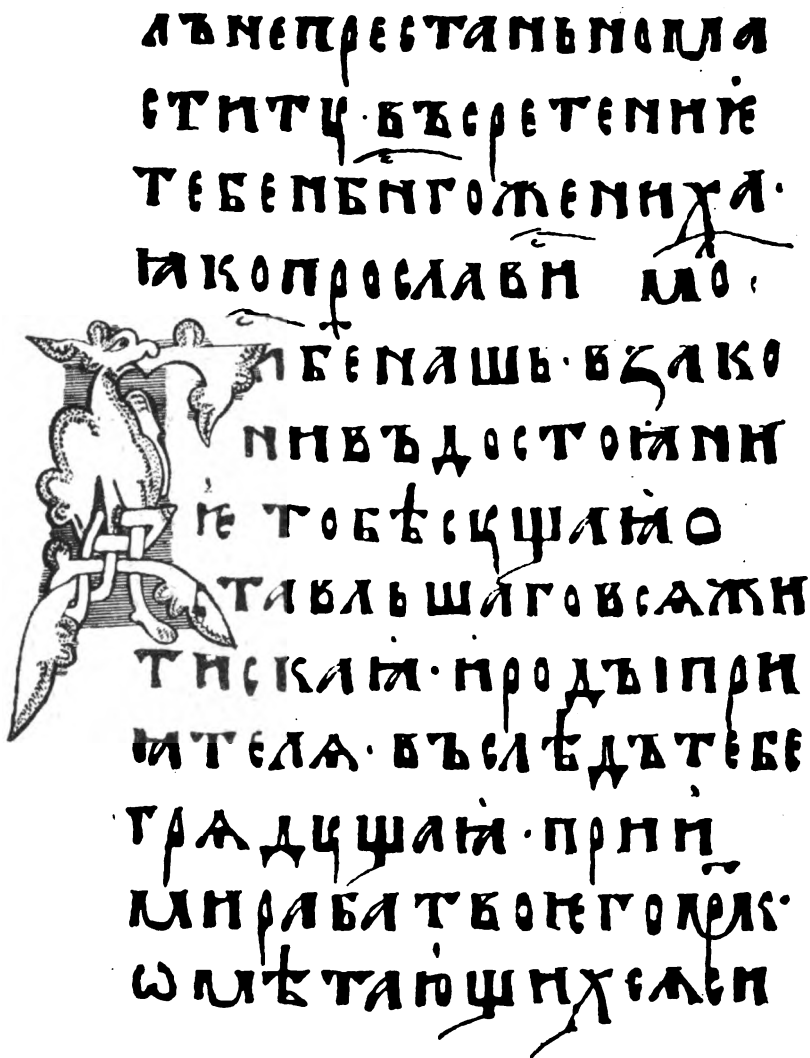 лънепрестаньномла
ститꙋ·въсретениѥ
тебенб҃нгоженіха·
ꙗкопрослави мⷧ҇о·
Г҃иб҃енашь·вꙁако
нивъдостоꙗни
ѥтобѣскꙋщаꙗо
ставльшаговсѧжи
тискаꙗ·иродъıпри
ꙗтелѧ·въслѣдътебе
грѧдꙋщаꙗ·прии
мирабатвоѥгом҃рк·
ѡмѣтающихсѧси